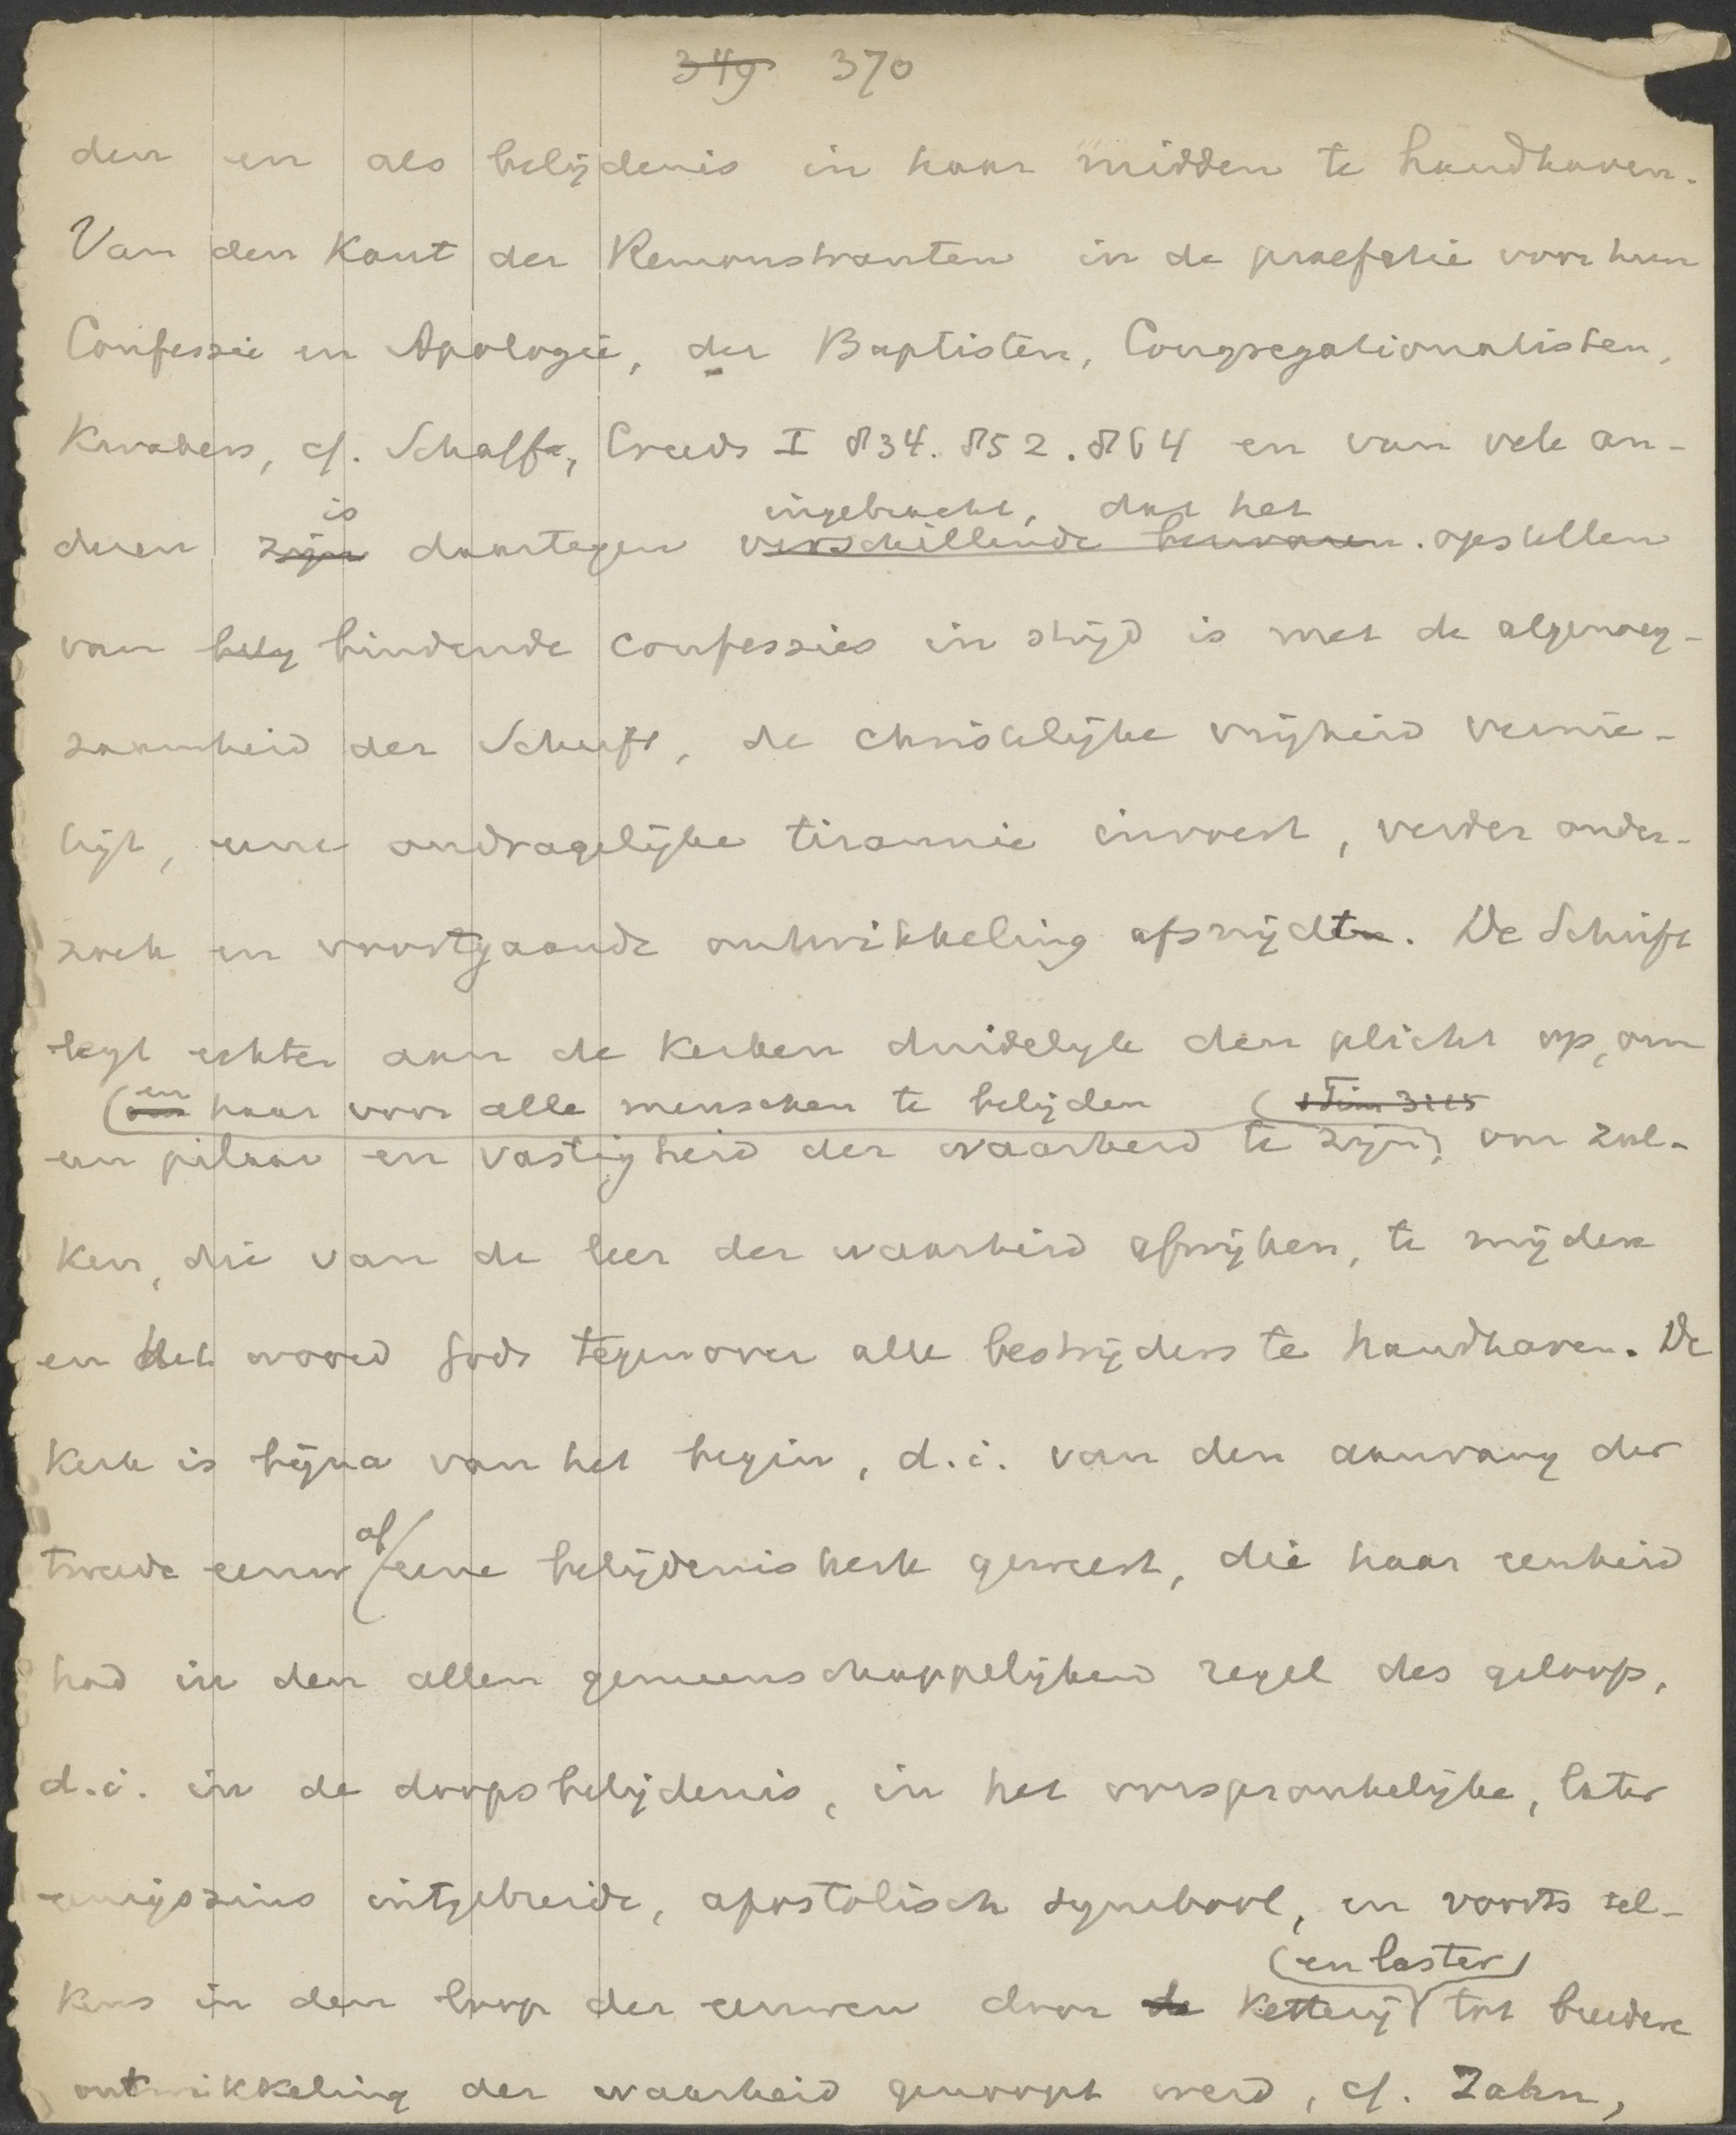 349 370
den en als belijdenis in haar midden te handhaven.
Van den kant der Remonstranten in de praefatie voor hun
Confessie en Apologie, der Baptisten, Congregationalisten,
Kwakers, cf. Schaff, Creeds I 834. 852. 864 en van vele an-
is ingebracht, dat het
deren zijn daartegen verschillende bezwaren. opstellen
van bely bindende confessies in strijd is met de algenoeg-
zaamheid der Schrift, de christelijke vrijheid vernie-
tigt, eene ondragelijke tirannie invoert, verder onder-
zoek en voortgaande ontwikkeling afsnijdt. De Schrift
legt echter aan de kerken duidelijk den plicht op, om
(en haar voor alle menschen te belijden (1 Tim 3:15
een pilaar en vastigheid der waarheid te zijn, om zul-
ken, die van de leer der waarheid afwijken, te mijden
en het woord Gods tegenover alle bestrijders te handhaven. De
kerk is bijna van het begin, d.i. van den aanvang der
af
tweede eeuw eene belijdeniskerk geweest, die haar eenheid
had in den allen gemeenschappelijken regel des geloofs,
d.i. in de doopsbelijdenis, in het oorspronkelijke, later
eenigszins uitgebreide, apostolisch symbool, en voorts tel-
(en laster)
kens in den loop der eeuwen door de ketterij tot breedere
ontwikkeling der waarheid genoopt werd, cf. Zahn,